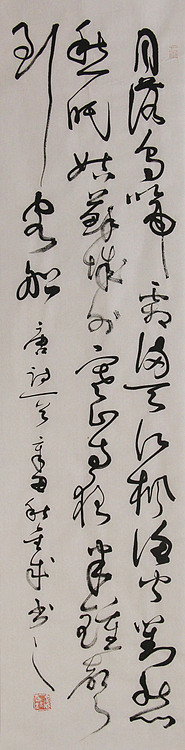 月落烏啼霜滿天江楓漁火對愁
眠姑蘇城外寒山寺夜半鐘聲
到客船
唐詩一首 秋 書之